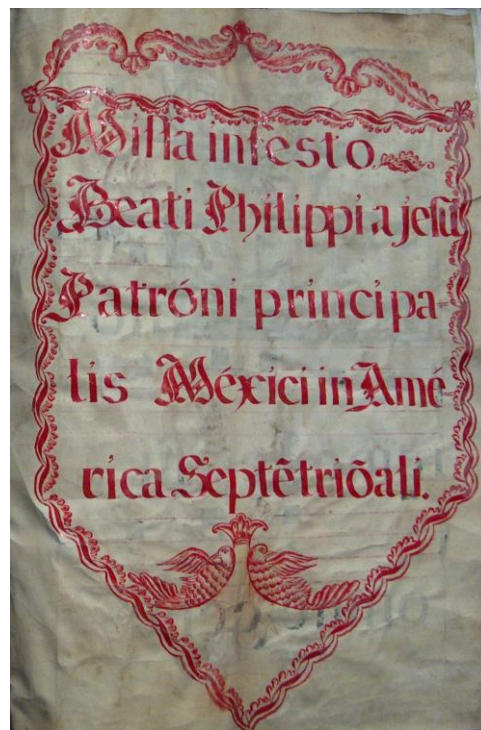 Missa in festo
Beati Philippi a jesu
Patróni principa-
lis Méxici in Amé
rica Septẽtriõali.